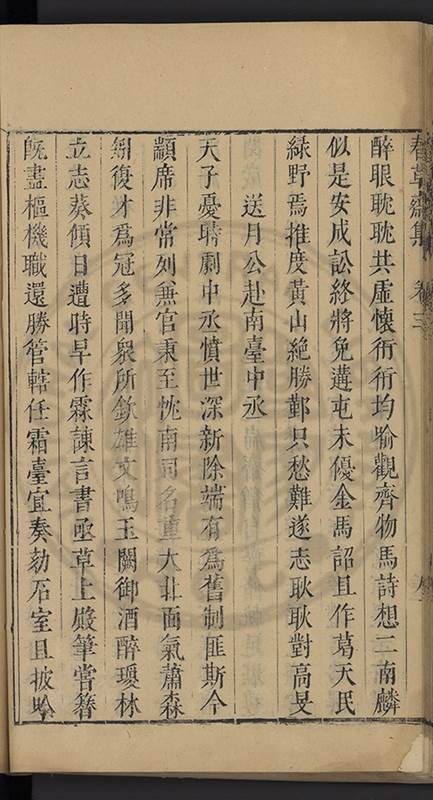 春草齋集 卷三
醉眼耽耽共虛懷衎衎均喻觀齊物馬詩想二南麟
似是安成訟終將免遘屯未優金馬詔且作葛天民
綠野焉推度黃山絕勝鄞只愁難遂志耿耿對高旻
送月公赴南臺中丞
天子憂時劇中丞憤世深新除端有為舊制匪斯今
顓席非常列兼官秉至忱南司名重大北面氣蕭森
矧復才為冠多聞眾所欽雄文鳴玉闕御酒醉瓊林
立志葵傾日遭時早作霖諫言書亟草上殿筆嘗簪
旣盡樞機職還勝管轄任霜臺宜奏劾石室且披吟